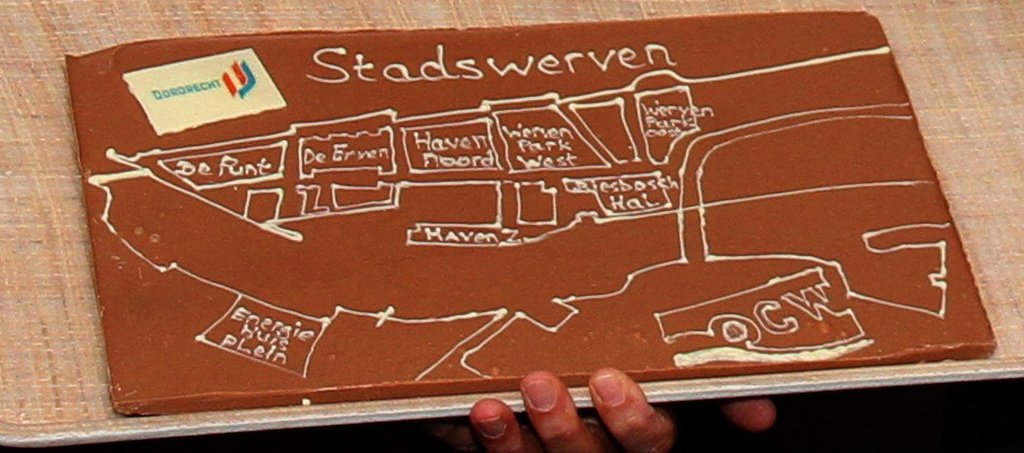 Stadswerven
DORDRECHT
De Punt
De Erven
Haven
Noord
Werven
Park
West
Werven
Park
oost
Biesbosch
Hal
Haven Z
Energie
huis
plein
OCW